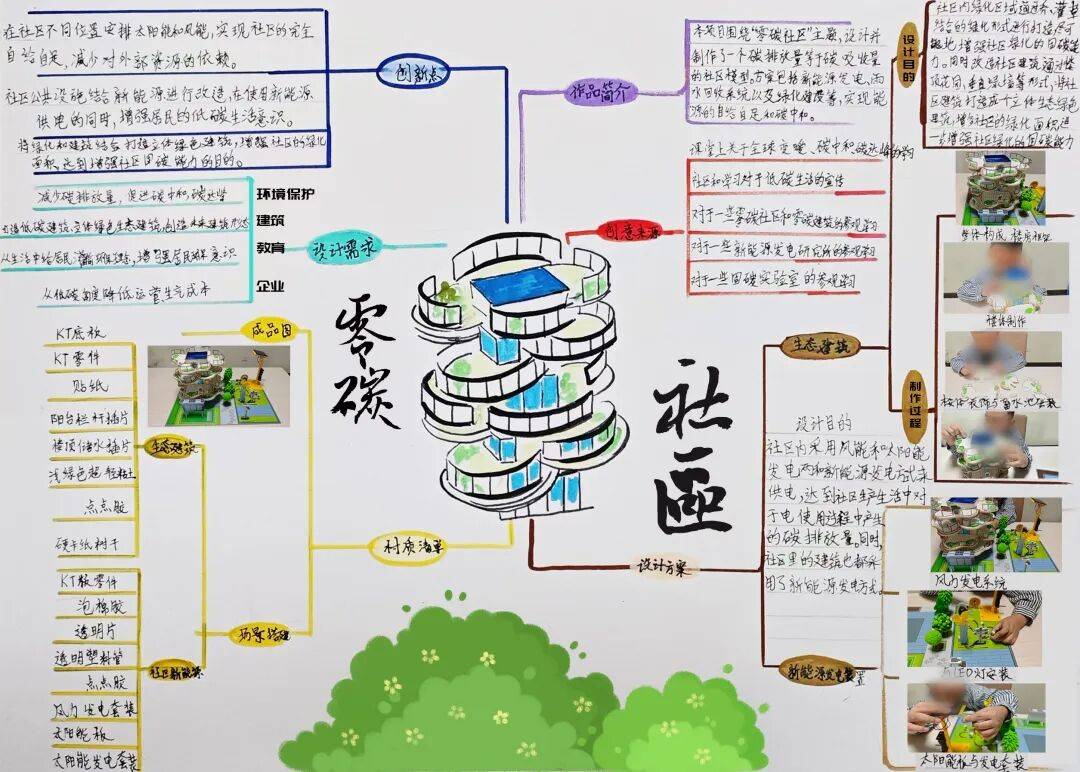 在社区不同位置安排太阳能和风能，实现社区的完全
自给自足，减少对外部资源的依赖。
社区公共设施结合新能源进行改造，在使用新能源
供电的同时，增强居民的低碳生活意识。
将绿化和建筑结合打造立体绿色建筑，增强社区的绿化
面积，达到增强社区固碳能力的目的。
创新点
减少碳排放量，促进碳中和，碳达峰
环境保护
低碳建筑，立体绿色生态建筑，创造未来建筑形态
建筑
从生活中给居民
教育
从低碳角度降低运营生产成本
企业
设计需求
作品简介
本项目围绕“零碳社区”主题，设计并
制作了一个碳排放量等于碳交收量
的社区模型，方案包括新能源发电，雨
水回收系统以及绿化建设等，实现能
源的自给自足和碳中和。
创意来源
课堂上关于全球变暖、碳中和碳达峰的学习
社区和学习对于低碳生活的宣传
对于一些零碳社区和零碳建筑的参观学习
对于一些新能源发电研究所的参观学习
对于一些固碳实验室的参观学习
设计目的
社区内绿化区域通过乔、灌、草
结合的绿化形式进行打造，尽可
能地增强社区绿化的固碳能
力。同时改造社区建筑，通过楼
顶花园，垂直绿墙等形式，将社
区建筑打造成一个立体生态绿色
建筑，增强社区的绿化面积，进一
步增强社区绿化的固碳能力
零碳
社區
成品图
KT底板
KT零件
贴纸
阳台栏杆插片
楼顶储水插片
浅绿色超轻粘土
点点胶
硬卡纸树干
生态建筑
KT板零件
泡棉胶
透明片
透明塑料管
点点胶
风力发电套装
太阳能板
太阳能发电套装
社区新能源
材质清单
场景搭建
设计方案
生态建筑
制作过程
整体构成 楼房框架
楼体制作
楼体装饰与雨水池安装
设计目的
社区内采用风能和太阳能
发电两种新能源发电方式来
供电，达到社区生产生活中对
于电使用过程中产生
的碳排放量。同时，
社区里的建筑也都采
用了新能源发电方式。
新能源发电装置
风力发电系统
LED灯安装
太阳能板与发电套装